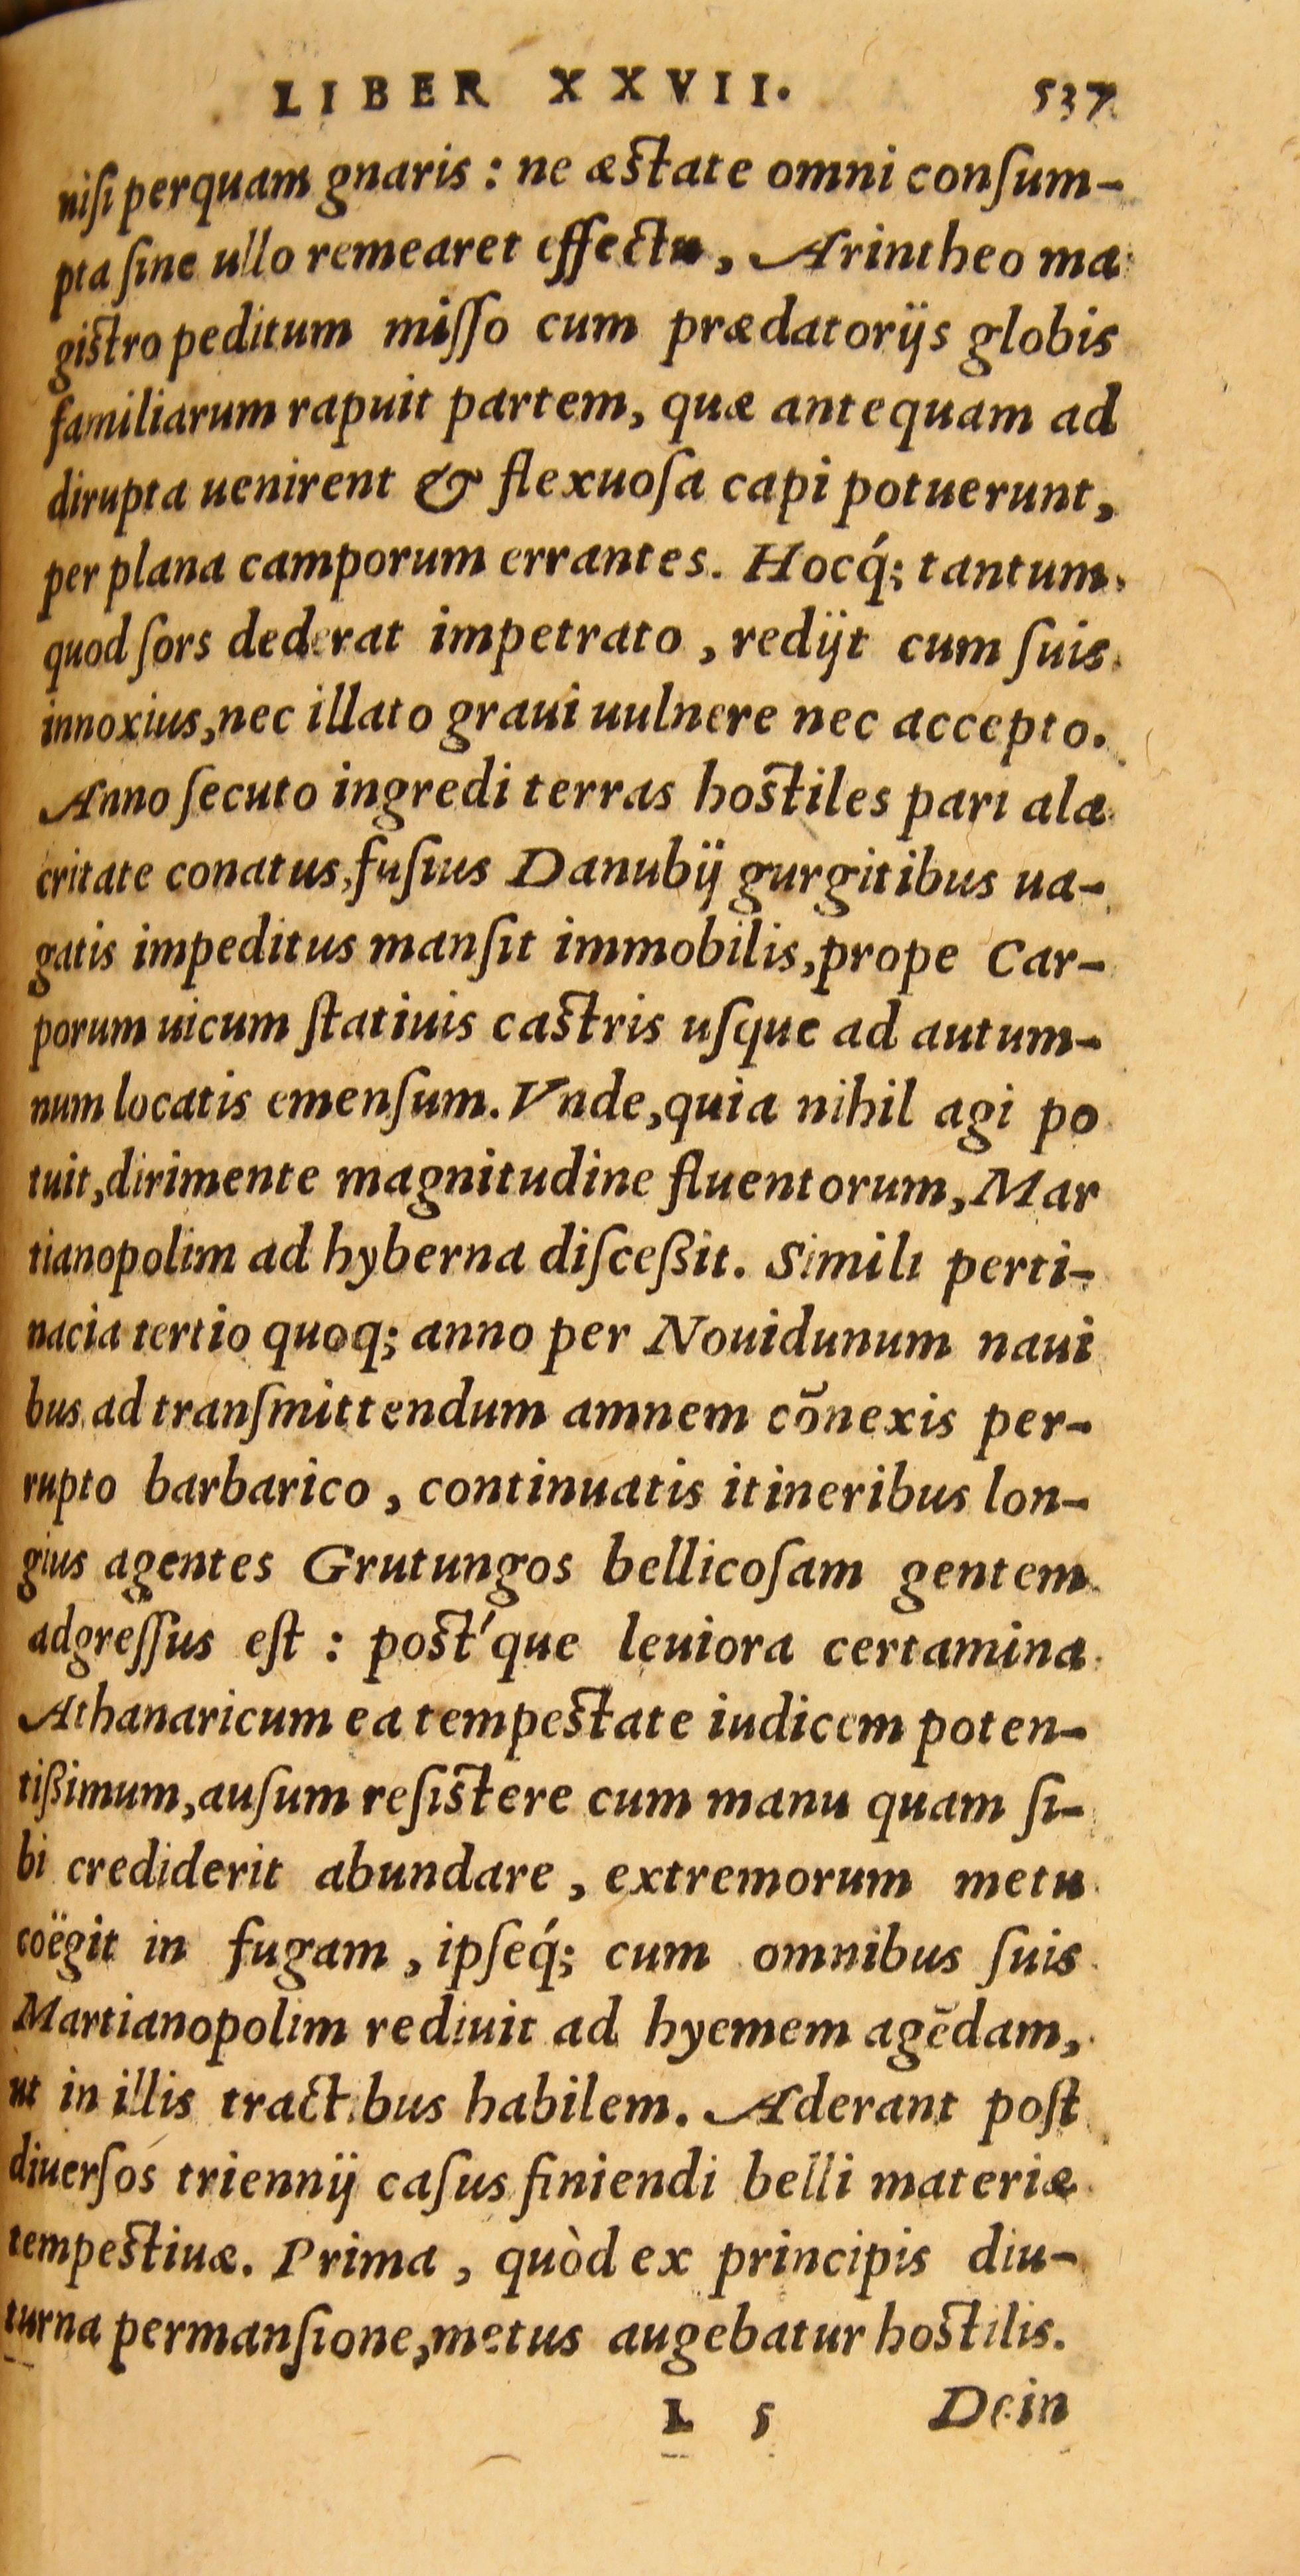 LIBER XXVII. 537
niſi perquam gnaris : ne æstate omni conſum-
pta ſine ullo remearet effectu, Arintheo ma
gistro peditum miſſo cum prædatorijs globis
familiarum rapuit partem, quæ antequam ad
dirupta uenirent & flexuoſa capi potuerunt,
per plana camporum errantes. Hocq́; tantum,
quod ſors dederat impetrato, redijt cum ſuis
innoxius, nec illato graui uulnere nec accepto.
Anno ſecuto ingredi terras hostiles pari ala
critate conatus, fuſius Danubij gurgitibus ua-
gatis impeditus manſit immobilis, prope Car-
porum uicum ſtatiuis castris uſque ad autum-
num locatis emenſum. Vnde, quia nihil agi po
tuit, dirimente magnitudine fluentorum, Mar
tianopolim ad hyberna diſceßit. Simili perti-
nacia tertio quoq; anno per Nouidunum naui
bus ad tranſmittendum amnem cōnexis per-
rupto barbarico, continuatis itineribus lon-
gius agentes Grutungos bellicoſam gentem
adgreſſus eſt : post'que leuiora certamina
Athanaricum ea tempestate iudicem poten-
tißimum, auſum reſistere cum manu quam ſi-
bi crediderit abundare, extremorum metu
coëgit in fugam, ipſeq́; cum omnibus ſuis
Martianopolim rediuit ad hyemem agēdam,
ut in illis tractibus habilem. Aderant poſt
diuerſos triennij caſus finiendi belli materiæ
tempestiuæ. Prima, quòd ex principis diu-
turna permanſione, metus augebatur hostilis.
L 5 Dein